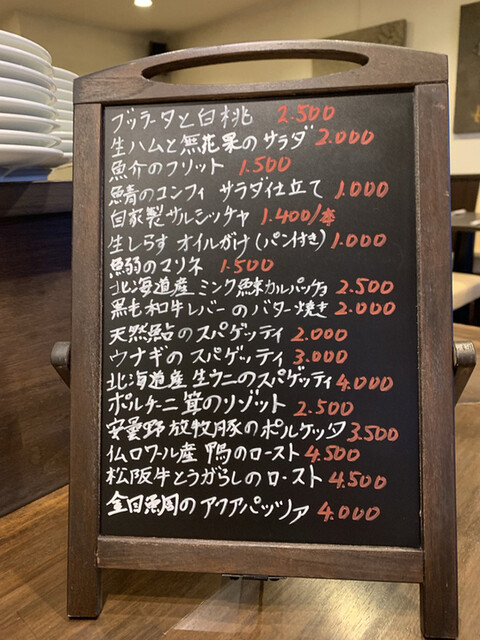 ブッラータと白桃 2.500
生ハムと無花果のサラダ 2.000
魚介のフリット 1.500
鯖のコンフィ サラダ仕立て 1.000
自家製サルシッチャ 1.400/本
生しらす オイルがけ(パン付き) 1.000
鰯のマリネ 1.500
北海道産 ミンク鯨カルパッチョ 2.500
黒毛和牛レバーのバター焼き 2.000
天然鮎のスパゲッティ 2.000
ウナギのスパゲッティ 3.000
北海道産 生ウニのスパゲッティ 4.000
ポルチーニ茸のリゾット 2.500
安曇野放牧豚のポルケッタ 3.500
仏ロワール産 鴨のロースト 4.500
松阪牛とうがらしのロースト 4.500
金目鯛のアクアパッツァ 4.000